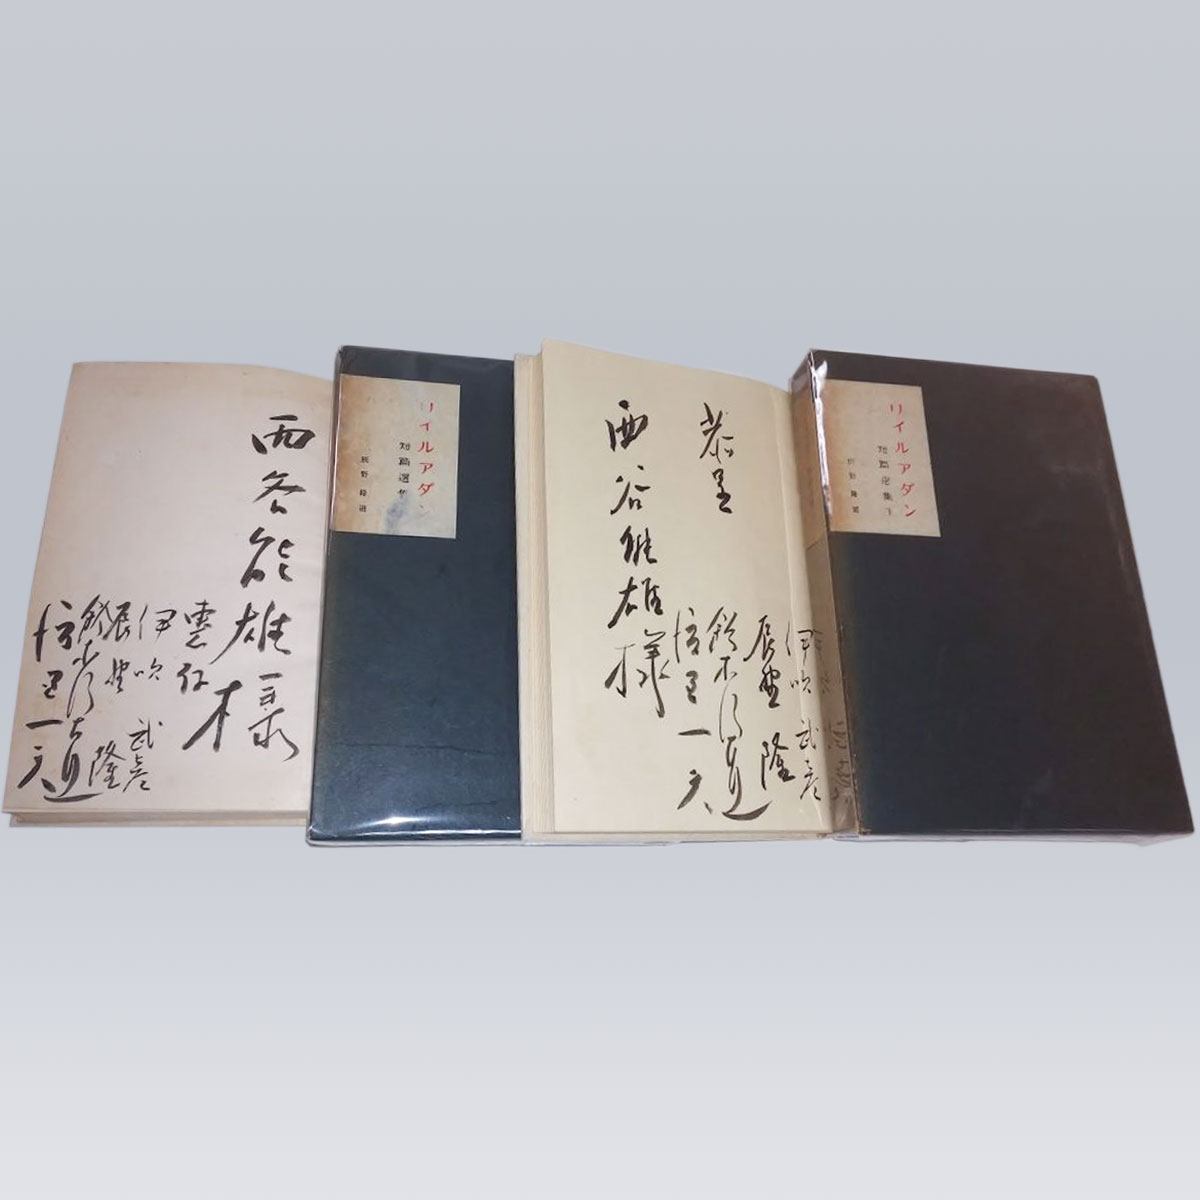 西谷能雄様
伊吹武彦
辰野隆
鈴木信太郎
渡邊一夫
リイルアダン
短篇選集
辰野隆選
恭呈
西谷能雄様
伊吹武彦
辰野隆
渡邊一夫
リイルアダン
短篇選集下
辰野隆選